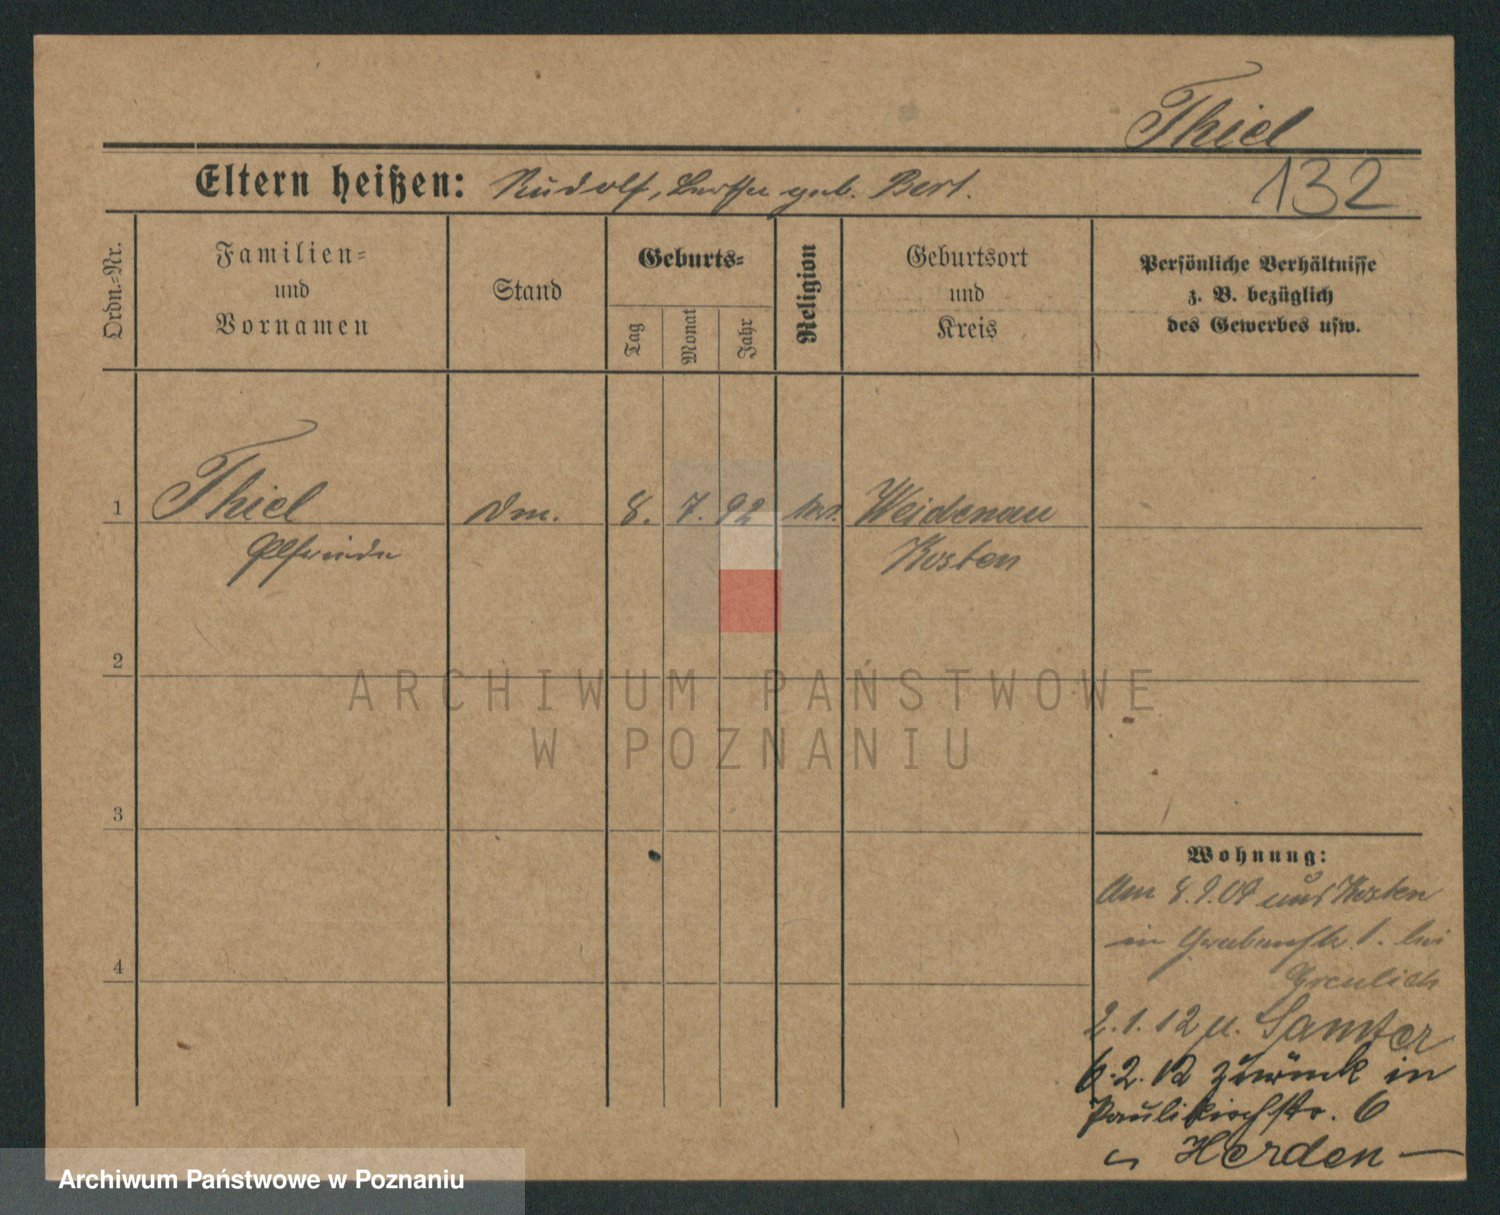 Thiel
132
Eltern heißen: Rudolf, Bertha geb. Bert.
Ordn.-Nr.
Familien-
und
Vornamen
Stand
Geburts-
Tag
Monat
Jahr
Religion
Geburtsort
und
Kreis
Persönliche Verhältnisse
z. B. bezüglich
des Gewerbes usw.
1
Thiel
Elfriede
8. 7. 92
Weidenau
Kosten
2
ARCHIWUM PAŃSTWOWE
W POZNANIU
3
4
Wohnung:
Am 8.9.09 aus Kosten
in 1. bei
Greulich
2.1.12 n. Samter
6.2.12 zurück in
Paulikirchstr. 6
Herden
Archiwum Państwowe w Poznaniu